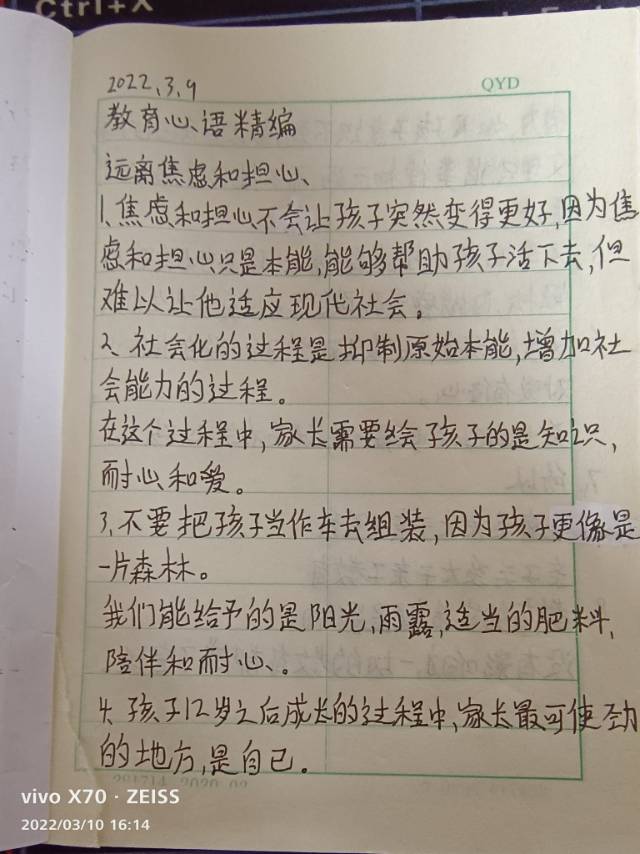 Ctrl+X
2022.3.9
QYD
教育心语精编
远离焦虑和担心、
1.焦虑和担心不会让孩子突然变得更好,因为焦
虑和担心只是本能,能够帮助孩子活下去,但
难以让他适应现代社会。
2、社会化的过程是抑制原始本能,增加社
会能力的过程。
在这个过程中,家长需要给孩子的是知识,
耐心和爱。
3.不要把孩子当作车去组装,因为孩子更像是
一片森林。
我们能给予的是阳光,雨露,适当的肥料,
陪伴和耐心、。
4.孩子12岁之后成长的过程中,家长最可使劲
的地方,是自己。
vivo X70 · ZEISS
2022/03/10 16:14